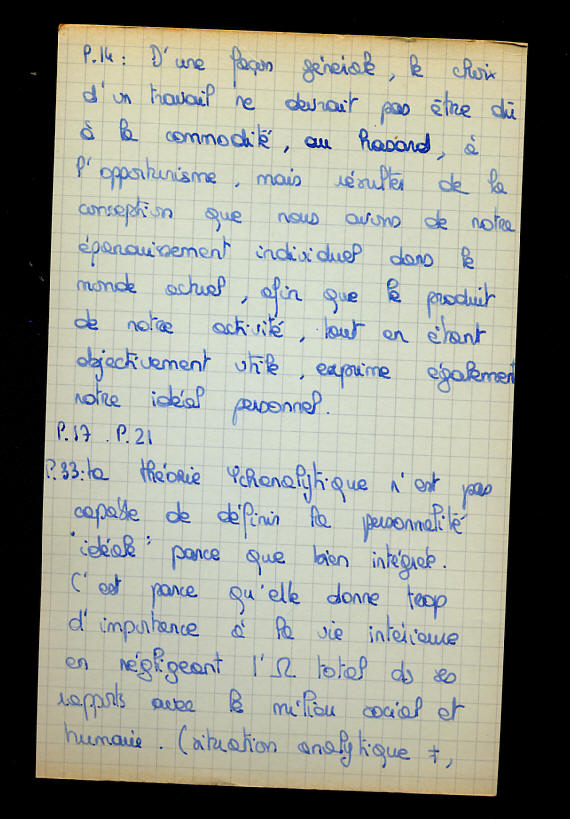 P.14 : D'une façon générale, le choix
d'un travail ne devrait pas être dû
à la commodité, au hasard, à
l'opportunisme, mais résulter de la
conception que nous avons de notre
épanouissement individuel dans le
monde actuel, afin que le produit
de notre activité, tout en étant
objectivement utile, exprime également
notre idéal personnel.
P.17 . P.21
P.33: La théorie Ψchanalytique n'est pas
capable de définir la personnalité
"idéale" parce que bien intégrée.
C'est parce qu'elle donne trop
d'importance à la vie intérieure
en négligeant l'Ω total ds ses
rapports avec le milieu social et
humain. (situation analytique ≠,